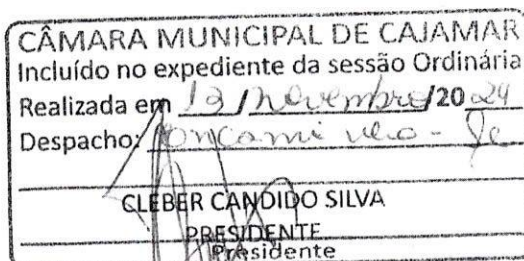 CÂMARA MUNICIPAL DE CAJAMAR
Incluído no expediente da sessão Ordinária
Realizada em 13 / Novembro /20 24
Despacho: Encaminhe-se
CLEBER CANDIDO SILVA
PRESIDENTE
Presidente